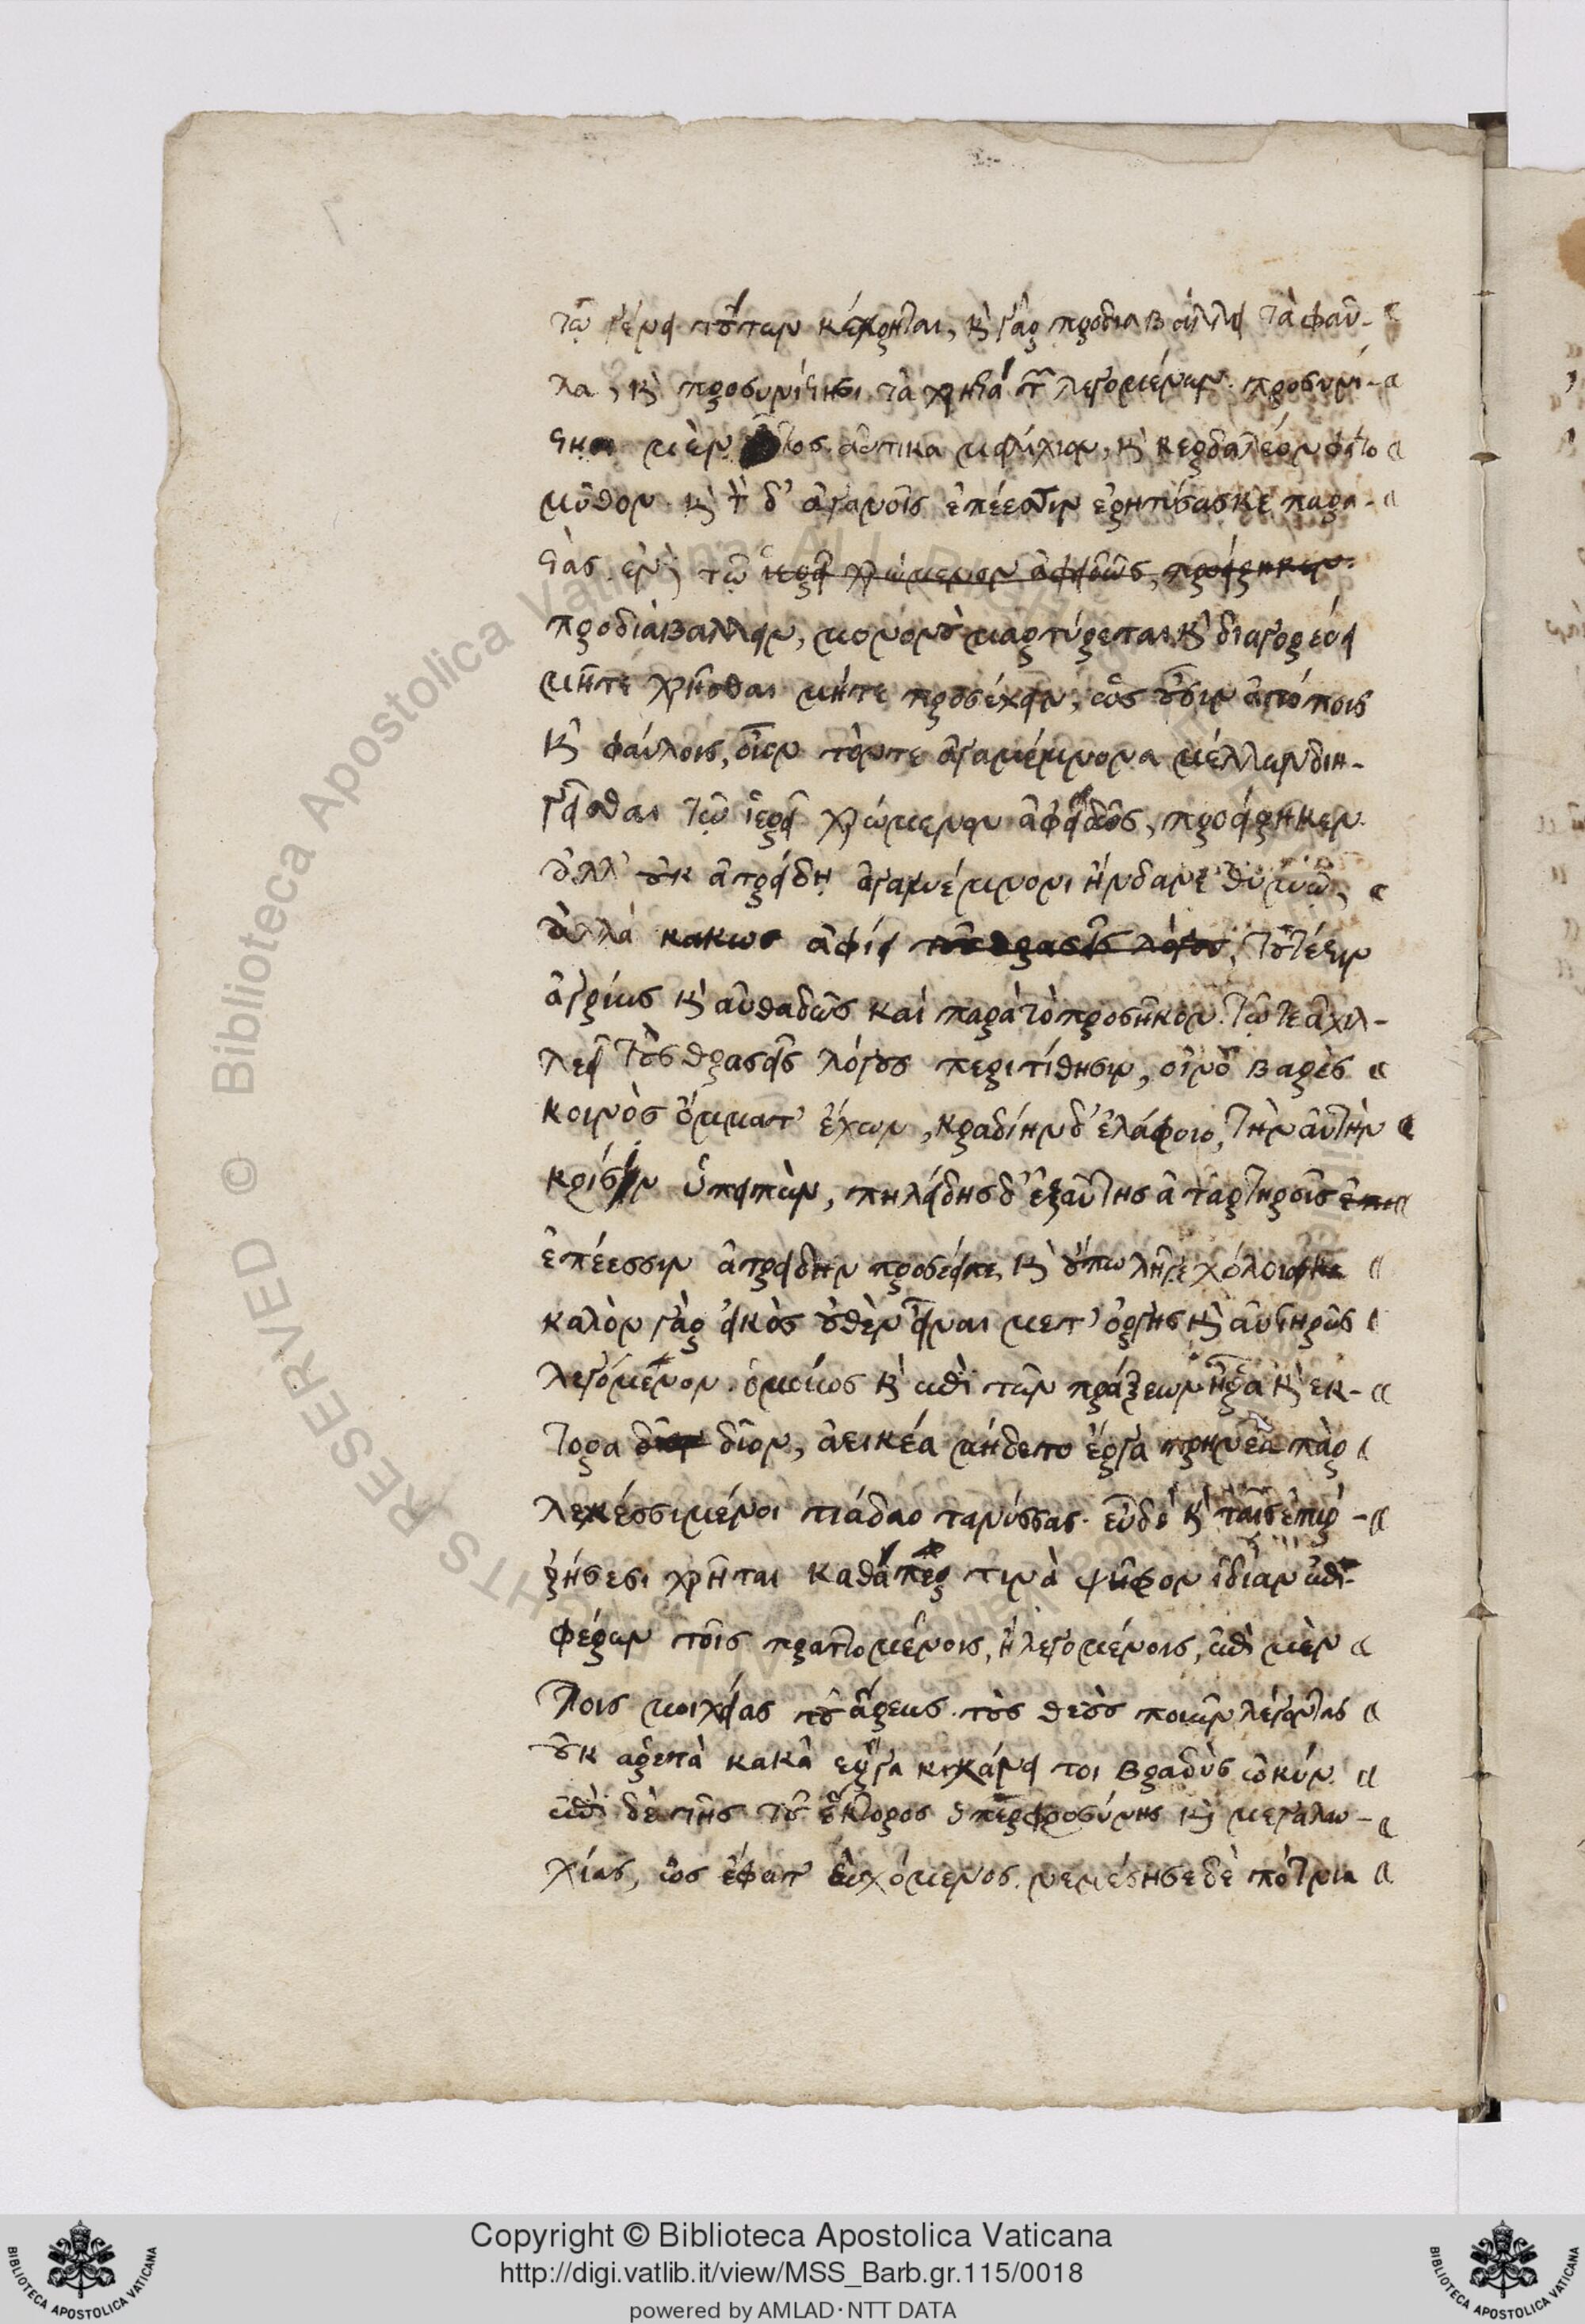 τῷ γένει τούτων κέχρηται, κ γὰρ προδιαβάλλει τὰ φαῦ-
λα, κ προσυνίστησι τὰ χρηστὰ τῶν λεγομένων. προσυνί-
στησι μὲν αὐτίκα μειλίχιον, κ κερδαλέον φάτο
μῦθον. κ τὸν δ' ἀγανοῖς ἐπέεσσιν ἐρητύσασκε παρα-
στάς. ἐν δὲ τῷ
προδιαβάλλειν, μονονοὺ μαρτύρεται κ διαγορεύει
μήτε χρῆσθαι μήτε προσέχειν, ὡς οὖσιν ἀτόποις
κ φαύλοις, οἷον τόν τε ἀγαμέμνονα μέλλων διη-
γεῖσθαι τῷ ἱερεῖ χρώμενον ἀφειδῶς, προείρηκεν
ἀλλ' οὐκ ἀτρείδῃ ἀγαμέμνονι ἥνδανε θυμῷ,
ἀλλὰ κακως ἀφίει τουτέστιν
ἀγρίως κ αὐθαδῶς καὶ παρὰ τὸ προσῆκον. τῷ τε ἀχιλ-
λεῖ τοὺς θρασεῖς λόγους περιτίθησιν, οἰνοβαρὲς
κοινὸς ὄμματ' ἔχων, κραδίην δ' ἐλάφοιο, τὴν αὐτὴν
κρίσιν ὑπειπὼν, πηλείδης δ' ἐξαῦτης ἀταρτηροῖς
ἐπέεσσιν ἀτρείδην προσέειπε, κ οὔπω λῆγε χόλοιο
καλὸν γὰρ εἰκὸς οὐθὲν εἶναι μετ' ὀργῆς κ αὐστηρῶς
λεγόμενον. ὁμοίως κ ἐπὶ τῶν πράξεων ἦ ῥα κ ἕκ-
τορα δῖον, ἀεικέα μήδετο ἔργα πρηνέα πὰρ
λεχέσσι μενοιτιάδαο τανύσσας. εὖ δὲ κ ταῖς ἐπιρ-
ρήσεσι χρῆται καθάπερ τινὰ ψῆφον ἰδίαν ἐπι-
φέρων τοῖς πραττομένοις, ἢ λεγομένοις, ἐπὶ μὲν
τοις μοιχείας τοῦ ἄρεως. τοὺς θεοὺς ποιῶν λέγοντας
οὐκ αρετὰ κακὰ εργα κιχάνει τοι βραδὺς ὠκύν.
ἐπὶ δὲ τῆς τοῦ ἕκτορος ὑπερφροσύνης κ μεγαλαυ-
χίας, ὡς ἔφατ' εὐχόμενος. νεμέσησε δὲ πότνια
Copyright © Biblioteca Apostolica Vaticana
http://digi.vatlib.it/view/MSS_Barb.gr.115/0018
powered by AMLAD·NTT DATA